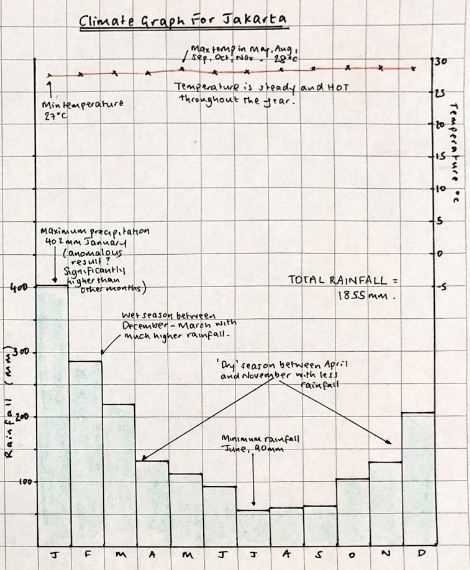 Climate Graph For Jakarta
Max temp in May, Aug,
Sep, Oct, Nov - 28°C
Min temperature
27°C
Temperature is steady and HOT
throughout the year.
30
25
20
15
10
5
0
-5
Temperature °C
Maximum precipitation
402mm January
(anomalous
result?
Significantly
higher than
other months)
TOTAL RAINFALL =
1855mm.
Wet season between
December - March with
much higher rainfall.
'Dry' season between April
and November with less
rainfall
Minimum rainfall
June, 90mm
400
300
200
100
Rainfall (mm)
J F M A M J J A S O N D